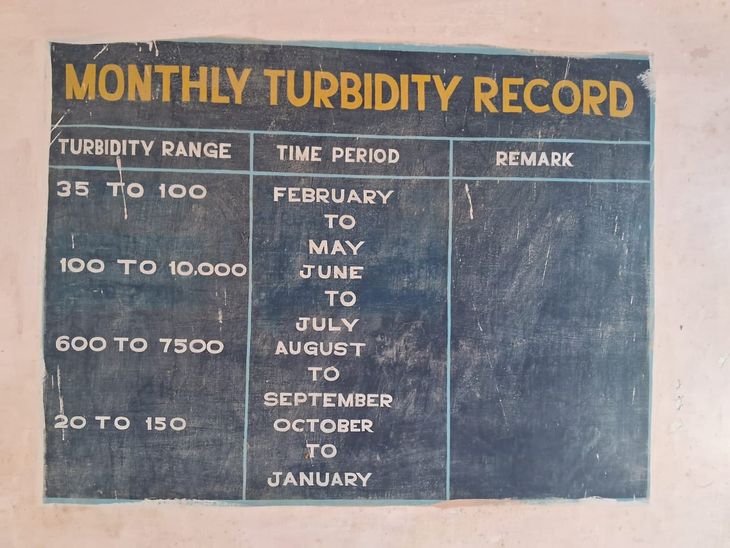 MONTHLY TURBIDITY RECORD
TURBIDITY RANGE TIME PERIOD REMARK
35 TO 100 FEBRUARY
TO
MAY
100 TO 10.000 JUNE
TO
JULY
600 TO 7500 AUGUST
TO
SEPTEMBER
20 TO 150 OCTOBER
TO
JANUARY